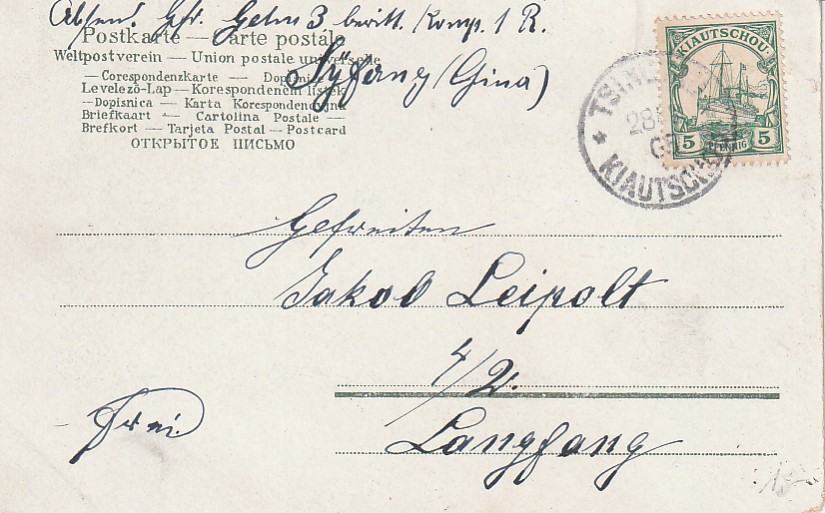 Absen. Gfr. Gehm 3 beritt. Komp. 1 R.
Postkarte — Carte postale
Weltpostverein — Union postale universelle
Syfang (Gina)
— Corespondenzkarte — Dopisni
Levelező-Lap — Korespondenční lístek
— Dopisnica — Karta Korespondencyjna
Briefkaart — Cartolina Postale —
Brefkort — Tarjeta Postal — Postcard
ОТКРЫТОЕ ПИСЬМО
KIAUTSCHOU
5 PFENNIG 5
TSIN
28
KIAUTSCHOU
Gefreiten
Jakob Leipolt
4/2.
Frei
Langfang